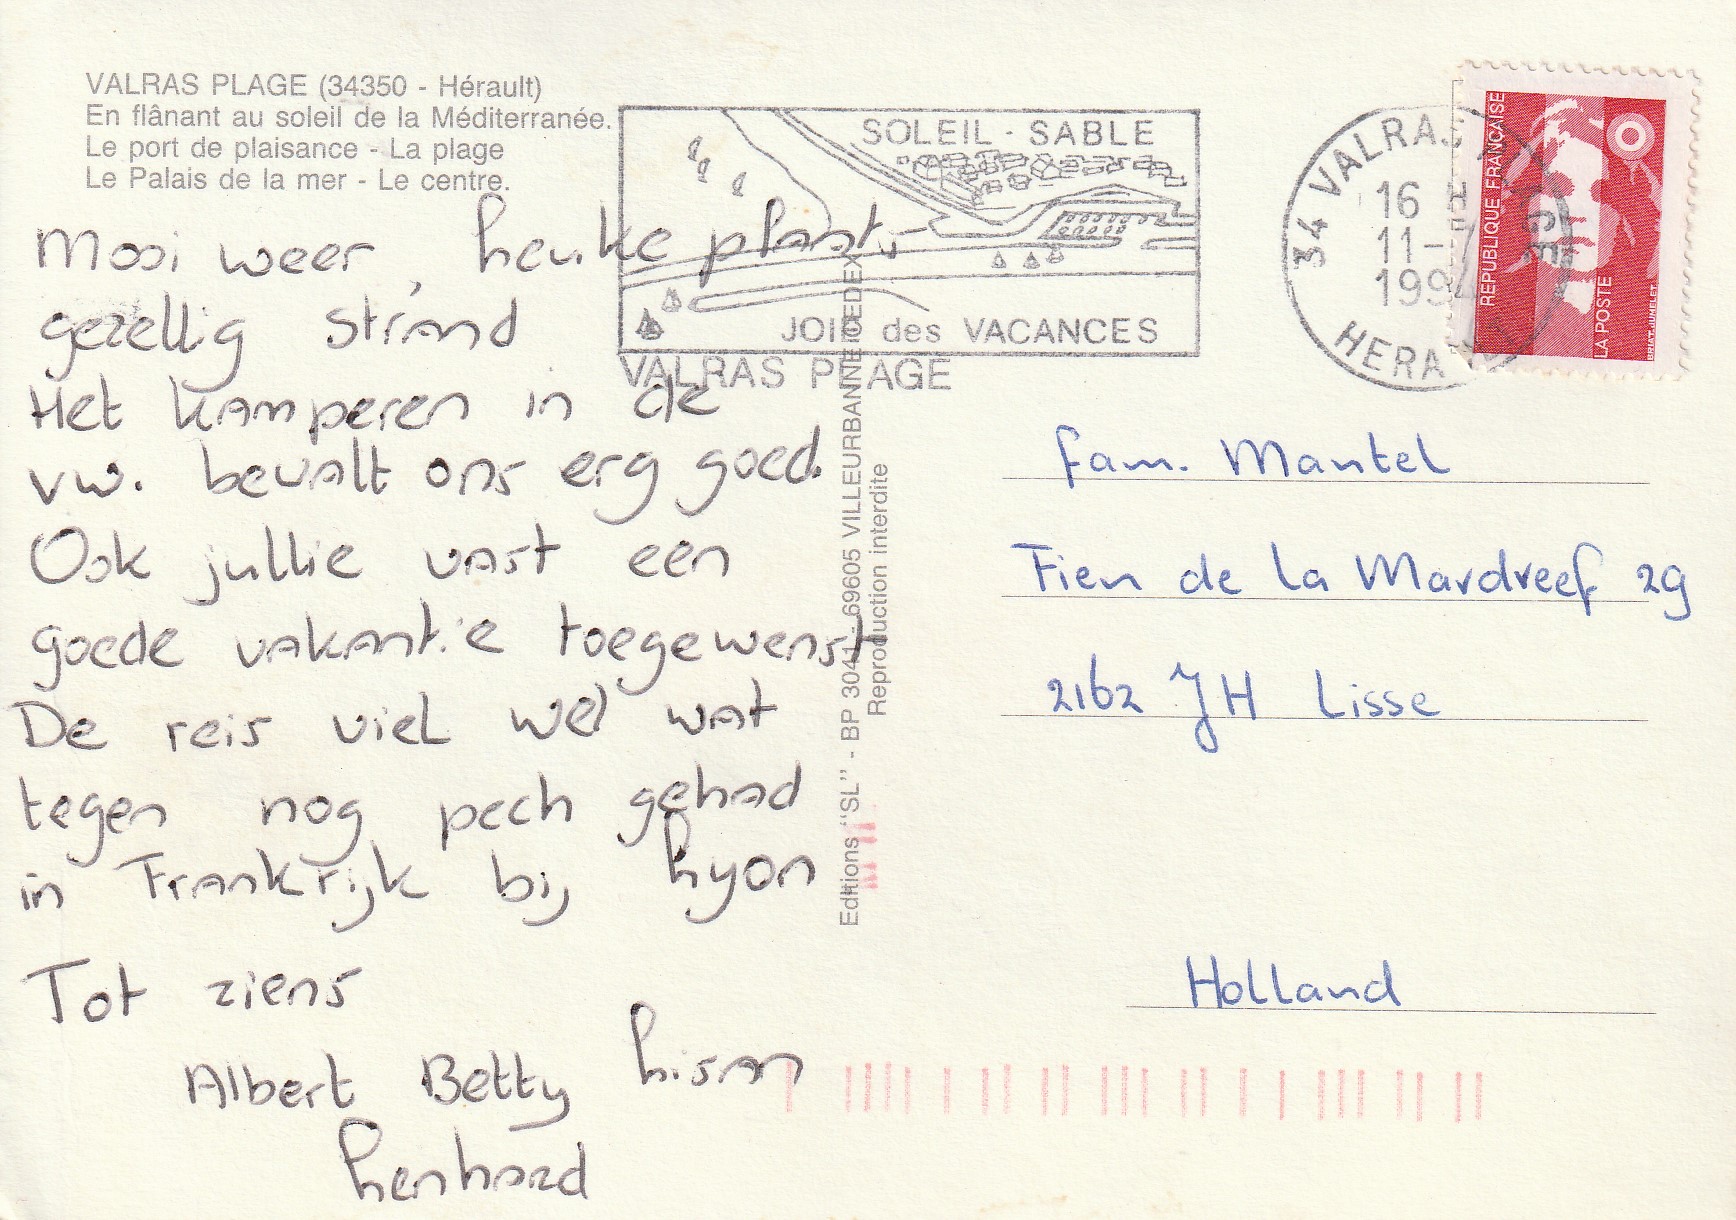 VALRAS PLAGE (34350 - Hérault)
En flânant au soleil de la Méditerranée.
Le port de plaisance - La plage
Le Palais de la mer - Le centre.
SOLEIL - SABLE
JOIE des VACANCES
VALRAS PLAGE
34 VALRAS
16 H
11-7
1994
HERA
REPUBLIQUE FRANÇAISE
LA POSTE
BRIAT-JUMELET
Mooi weer, leuke plaats
gezellig strand
Het kamperen in de
vw. bevalt ons erg goed.
Ook jullie vast een
goede vakantie toegewenst
De reis viel wel wat
tegen nog pech gehad
in Frankrijk bij Lyon
Tot ziens
Albert Betty Lisan
Lenhard
Editions "SL" - BP 3041 - 69605 VILLEURBANNE CEDEX
Reproduction interdite
fam. Mantel
Fien de la Mardreef 29
2162 JH Lisse
Holland